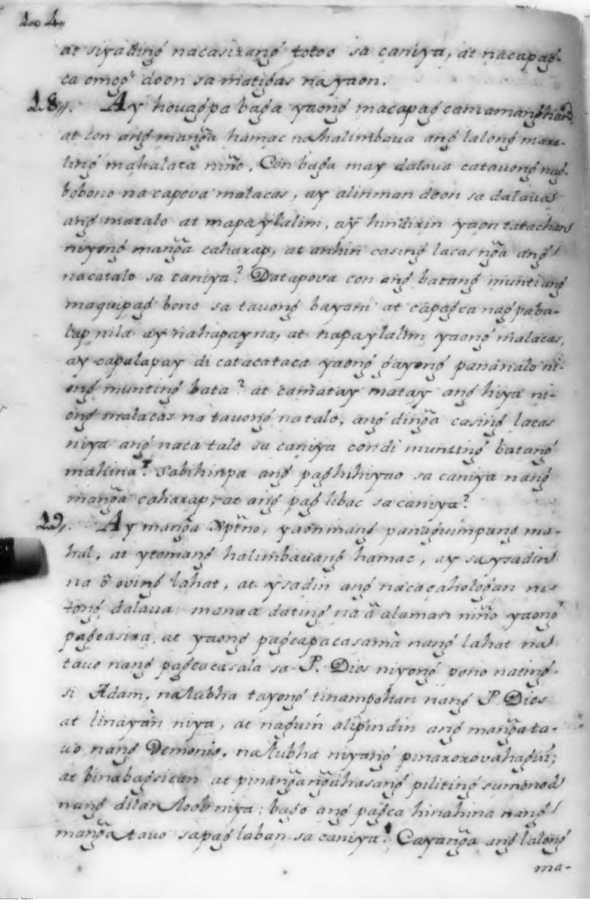 124
at siyading nacasirang totoo sa caniya, at nacapag-
ca omgo doon sa matigas na yaon.
18,,. Ay houag pa baga yaong macapagcamamanghan͠g
at con ang mang̃a hamac na halimbaua ang lalong mara-
ling mahalata niño. Con baga may dalaua catauong nag-
bobono na capoua malacas, ay alinman doon sa dalaua
ang matalo at mapaylalim, ay hindi rin yaon tatachaos
niyong mang̃a caharap, at anhin casing lacas ng̃a ang
nacatalo sa caniya? Datapoua con ang batang munti ang
maquipag bono sa tauong bayani at capagca nagpaba-
cap nila ay nahapayna, at napaylalim yaong malacas,
ay capalapay di catacataca yaong gayong pananalo ni-
ong munting bata? at camatay matay ang hiya ni-
ong malacas na tauong natalo, ang ding̃a casing lacas
niya ang naca talo sa caniya condi munting batang
mahina? sabihinpa ang paghihiyao sa caniya nang
mang̃a caharap, ac ang pag libac sa caniya?
19,. Ay mang̃a Xptno, yaonmang panuguimpung ma-
hal, at ytomang halimbauang hamac, ay sasysadin
na ouing lahat, at ysadin ang nacacahologan ni-
tong dalaua: manaa dating na alaman niño yaong
pagcasira, at yaong pagcapacasama nang lahat na
tauo nang pagcacasala sa P. Dios niyong pono nating
si Adam, na lubha tayong tinampohan nang P. Dios
at linayan niya, at naguin alipin din ang mang̃a ta-
uo nang Demonio, na lubha niyang pinaroxouahaguil;
at binabagsican at pinang̃ang̃ahasang piliting sumonod
nang dilan loob niya: bago ang pagca hinahina nang
mang̃a tauo sa pag laban sa caniya! Cayang̃a ang lalong
ma-